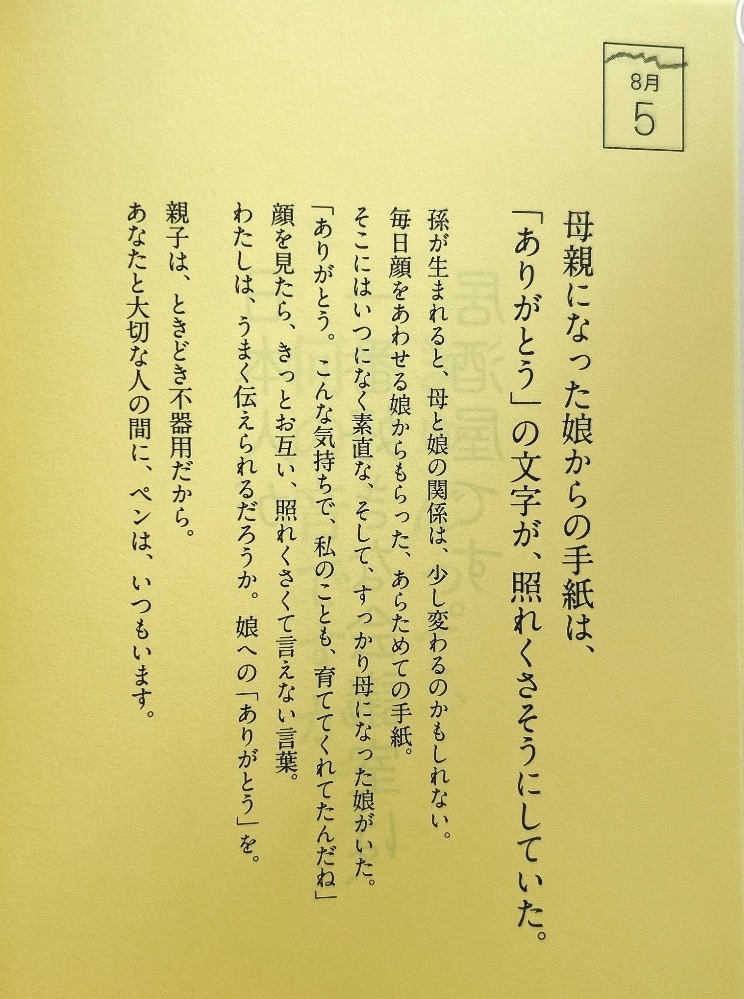 8月
5
母親になった娘からの手紙は、
「ありがとう」の文字が、照れくさそうにしていた。
孫が生まれると、母と娘の関係は、少し変わるのかもしれない。
毎日顔をあわせる娘からもらった、あらためての手紙。
そこにはいつになく素直な、そして、すっかり母になった娘がいた。
「ありがとう。こんな気持ちで、私のことも、育ててくれてたんだね」
顔を見たら、きっとお互い、照れくさくて言えない言葉。
わたしは、うまく伝えられるだろうか。娘への「ありがとう」を。
親子は、ときどき不器用だから。
あなたと大切な人の間に、ペンは、いつもいます。